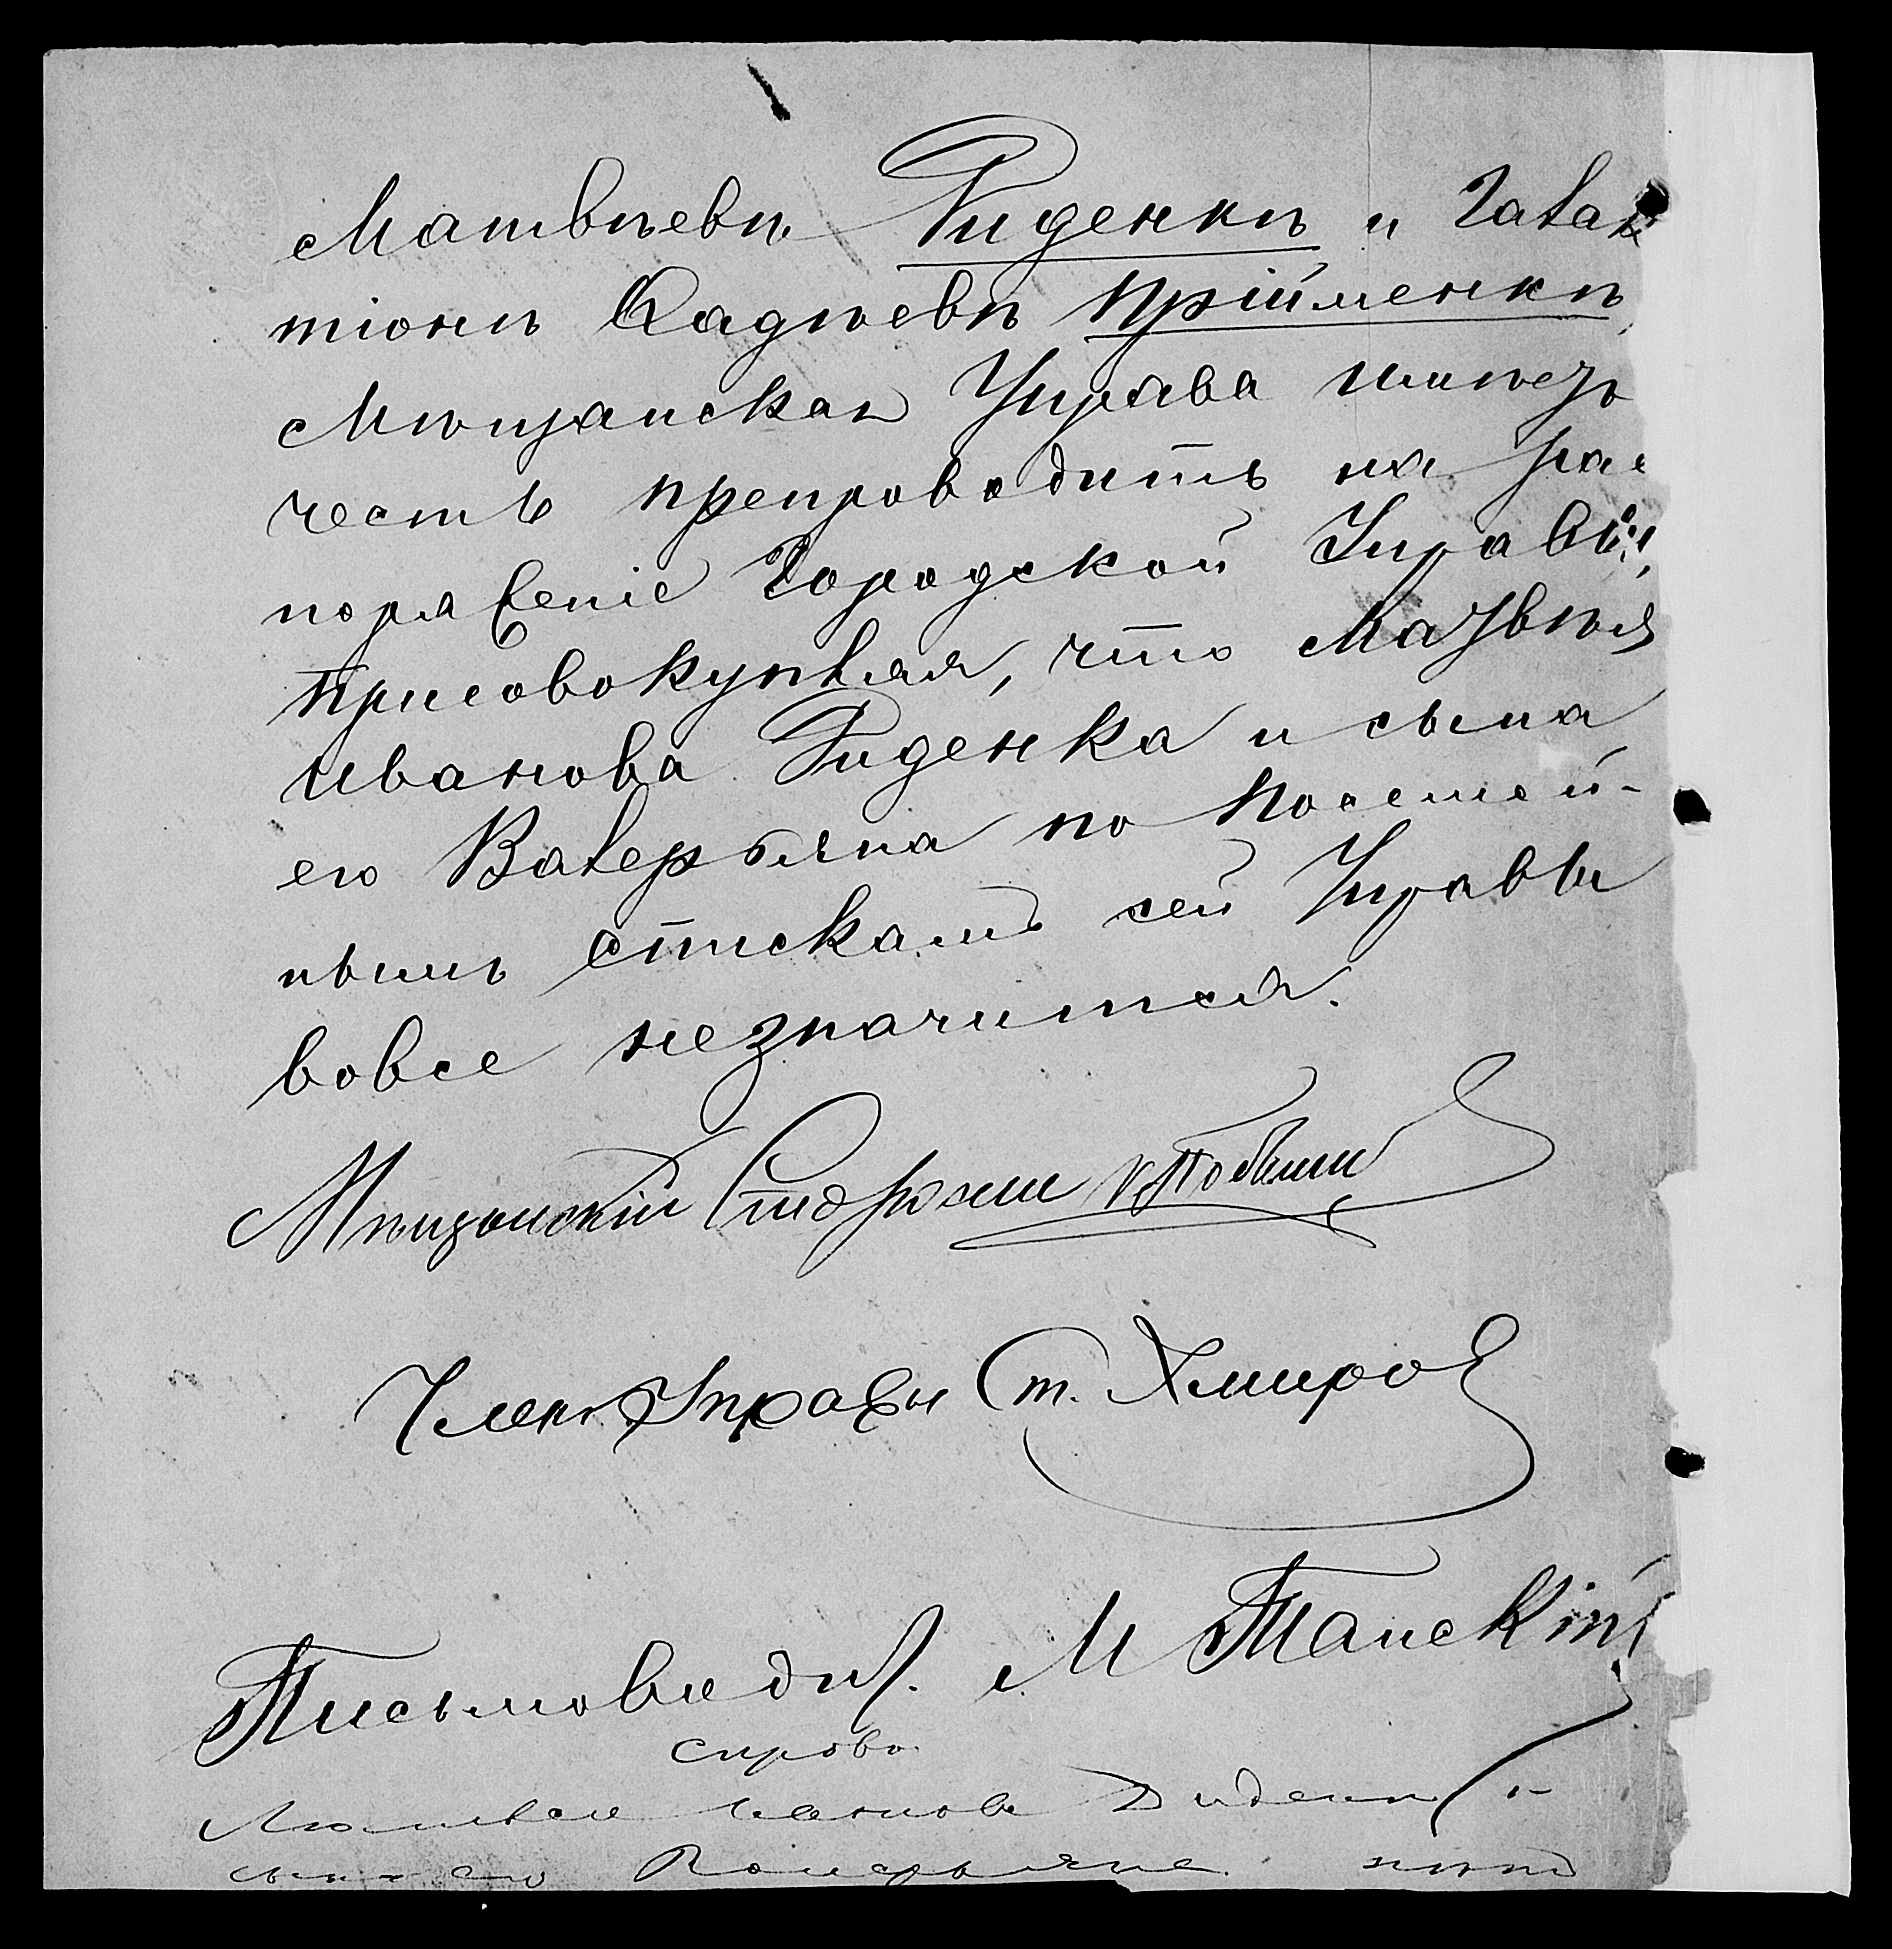 Матвѣевѣ Диденкѣ и Галак
тіонѣ Фадѣевѣ Прійменкѣ,
Мѣщанская Управа имѣетъ
честь препроводить на рас
поряженіе Городской Управы,
присовокупляя, что Матвѣя
Иванова Диденка и сына
его Валерьяна по посемей-
нымъ спискамъ сей Управы
вовсе незначится.
Мѣщанскій Староста
Членъ Управы Ст. Хмыровъ
Письмоводит. М Танскій
справа
Матвея Иванова Диденк и
сына его Валерьяна нѣтъ